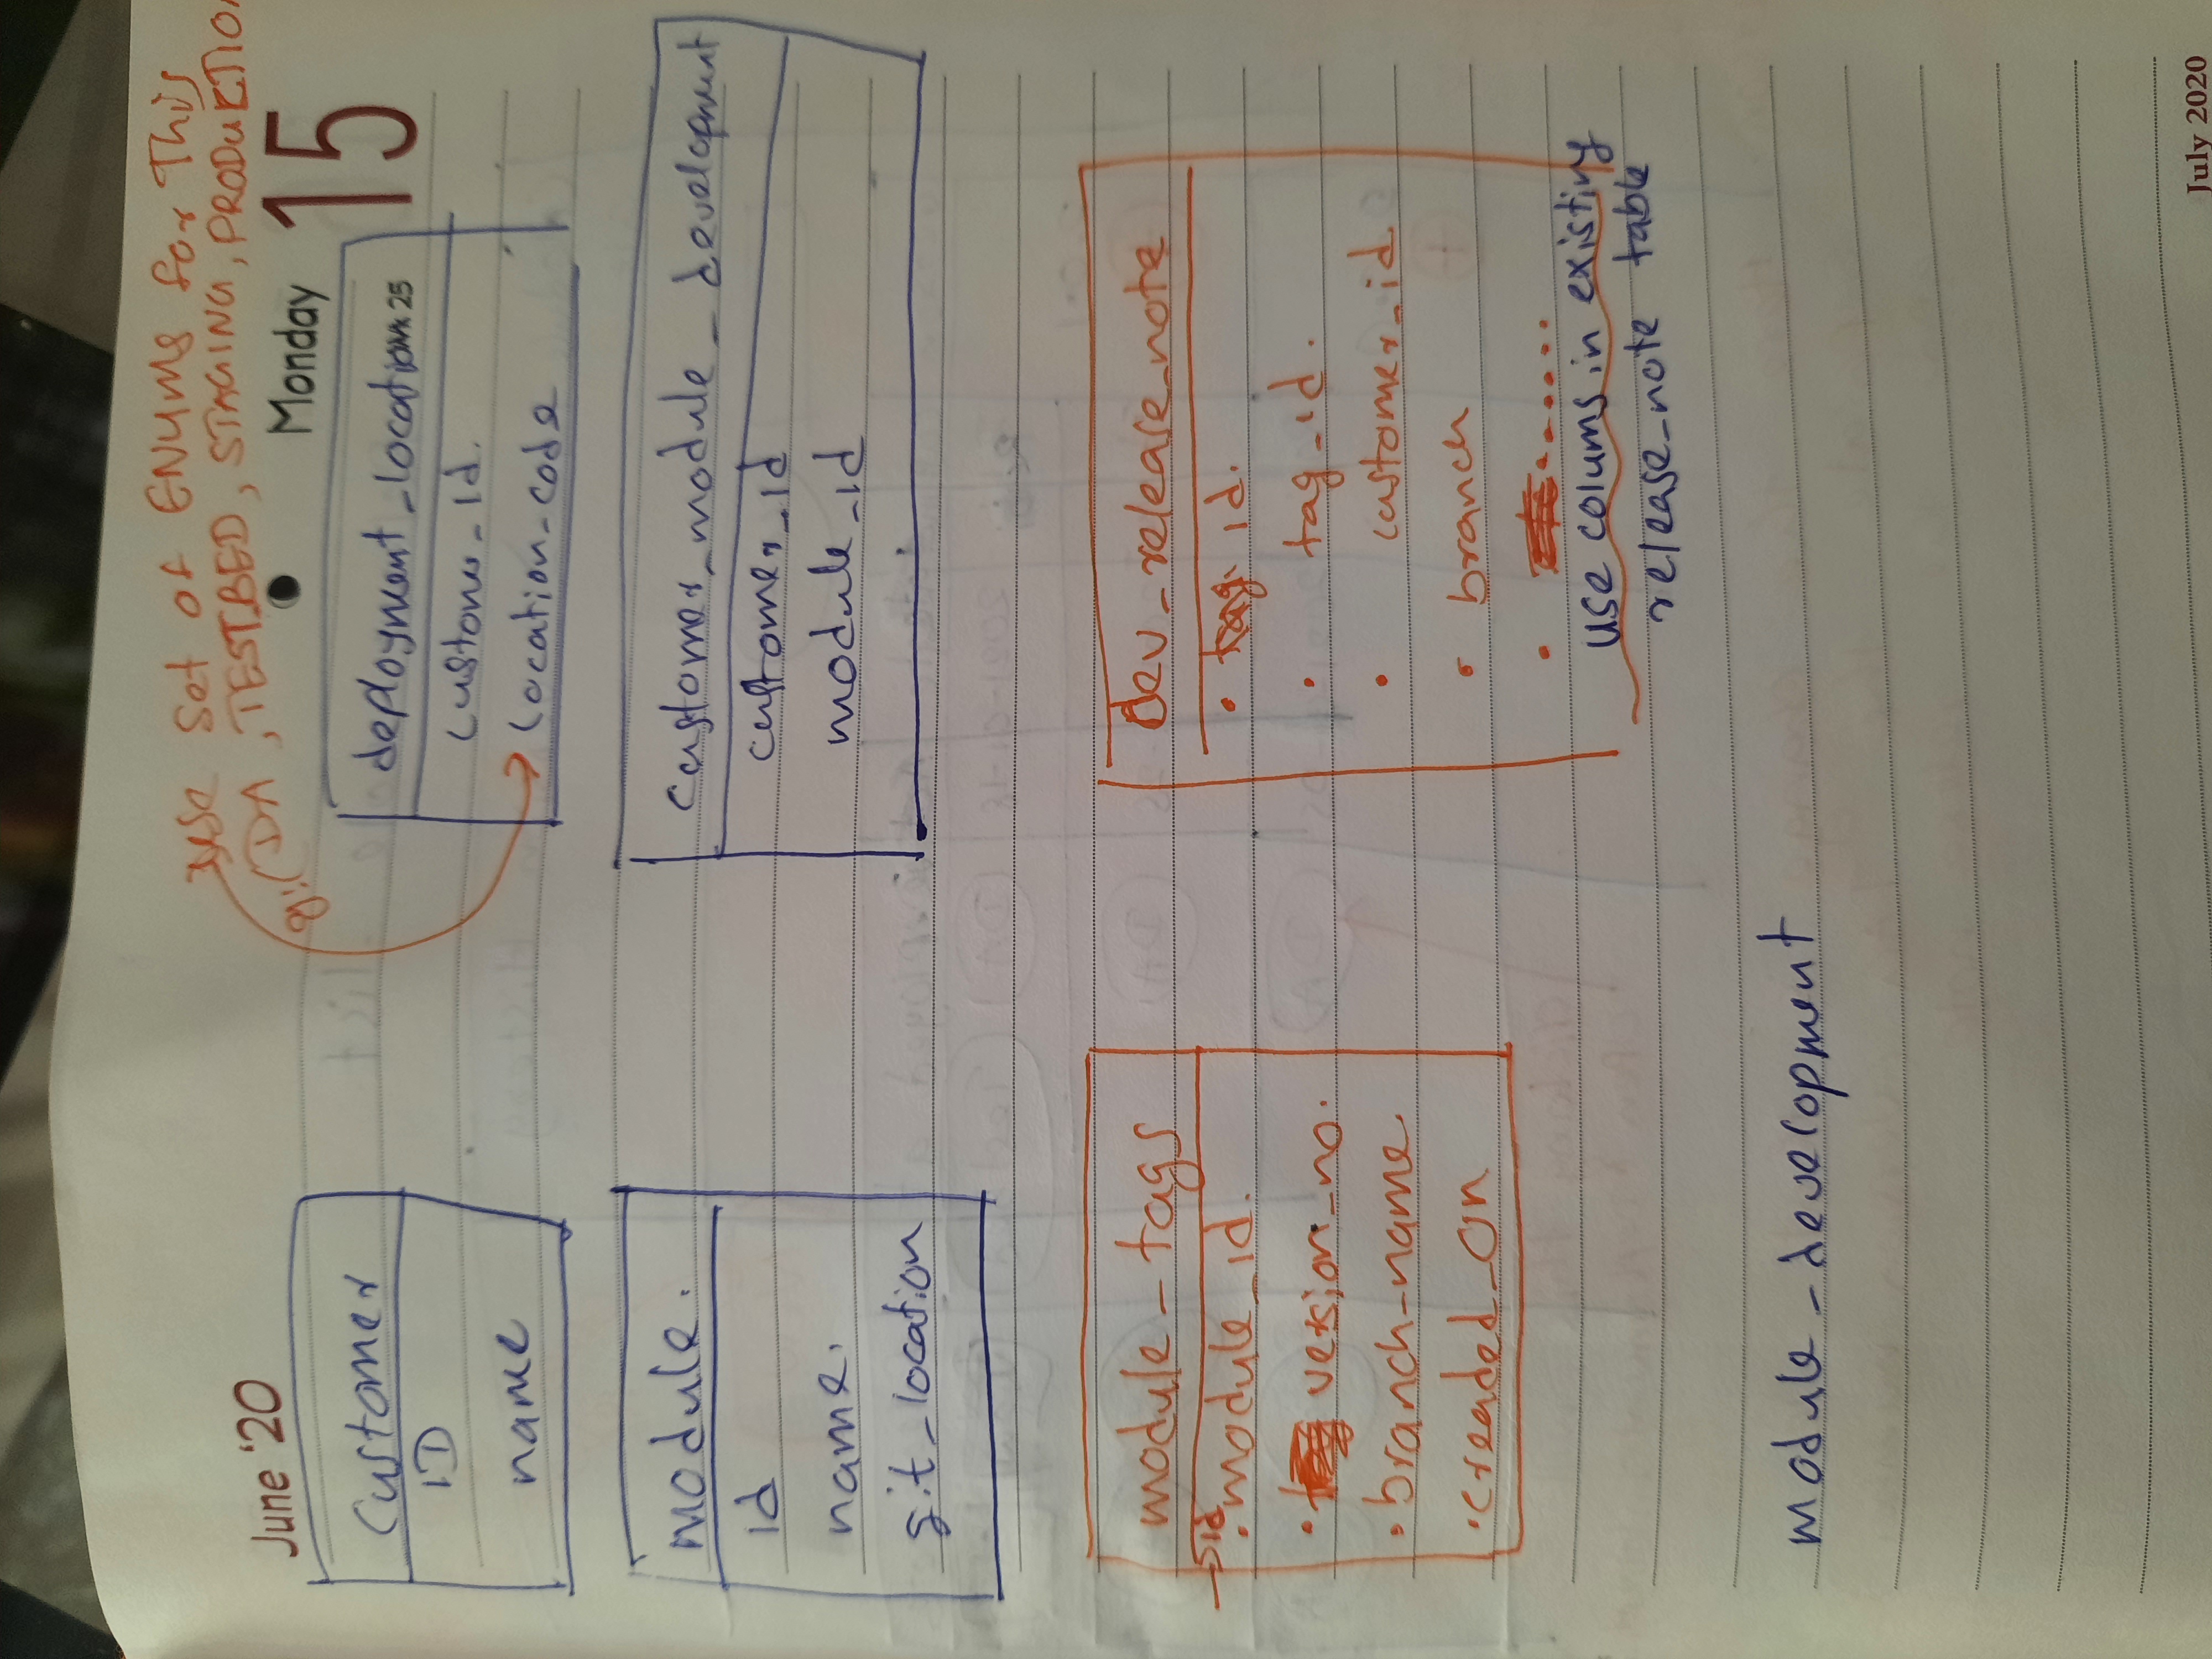 Use Set of ENUMS for This
eg: (DA, TESTBED, STAGING, PRODUKTIO
June '20
Monday 15
Wk 25
Customer
ID
name
deployment_location
customer_id.
location_code
module.
id
name.
git_location
customer_module_development
customer_id
module_id
module_tags
→ id
• module_id.
• version_no.
• branch_name.
• creaded_on
dev_release_note
• id.
• tag_id.
• customer_id.
• branch
• .......
use colums in existing
release_note table
module_development
July 2020